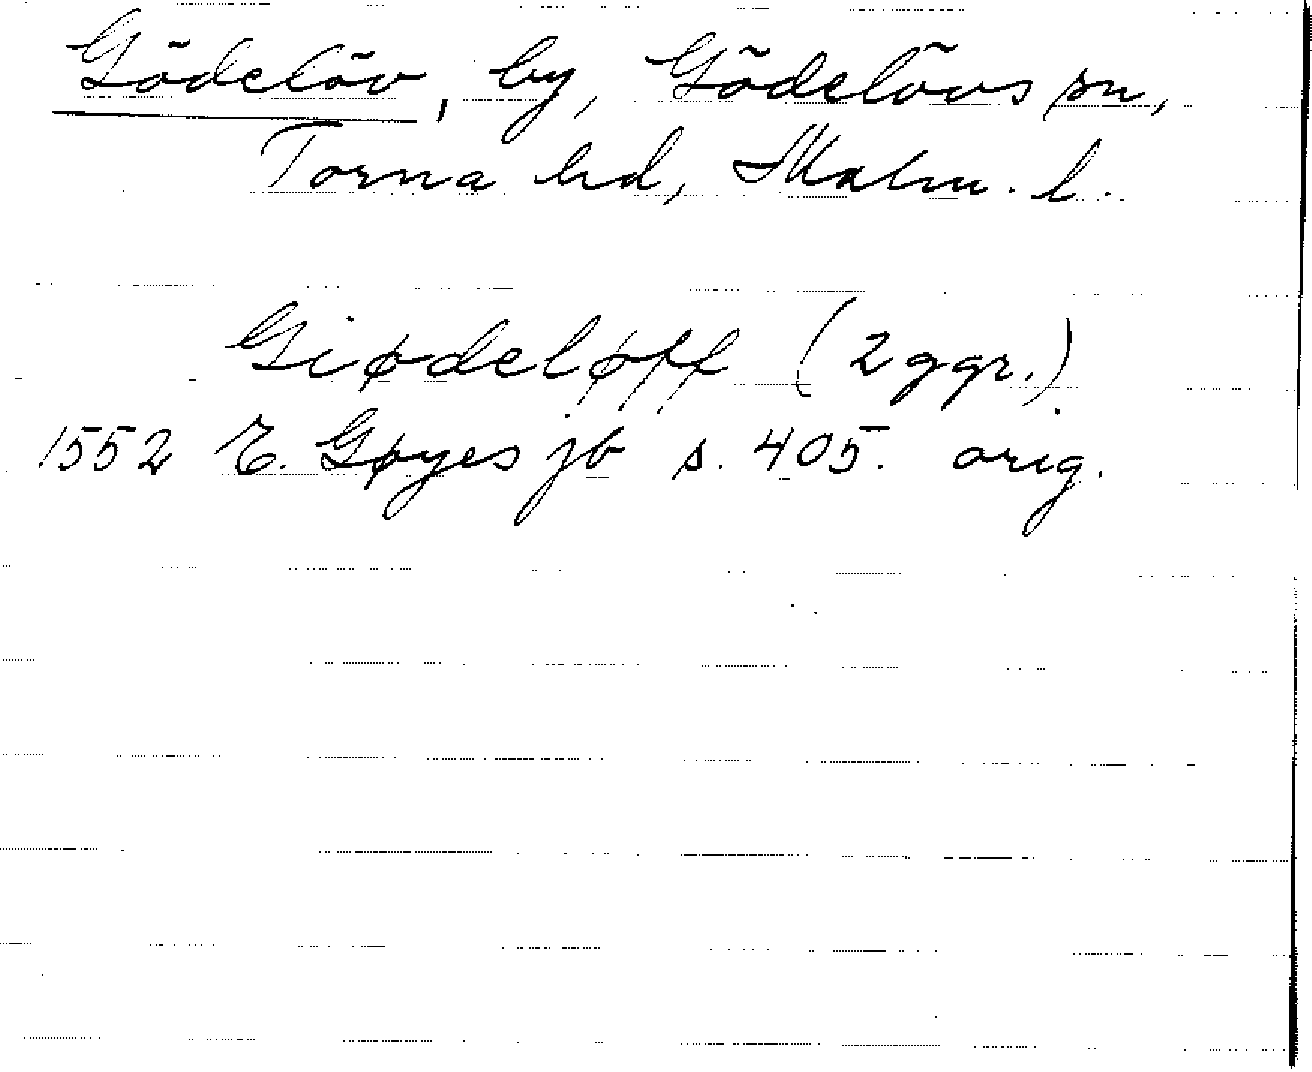 Gödelöv, by, Gödelövs sn,
Torna hd, Malm. l.
Giødeløff (2 ggr.).
1552 E. Gøyes jb s. 405. orig.